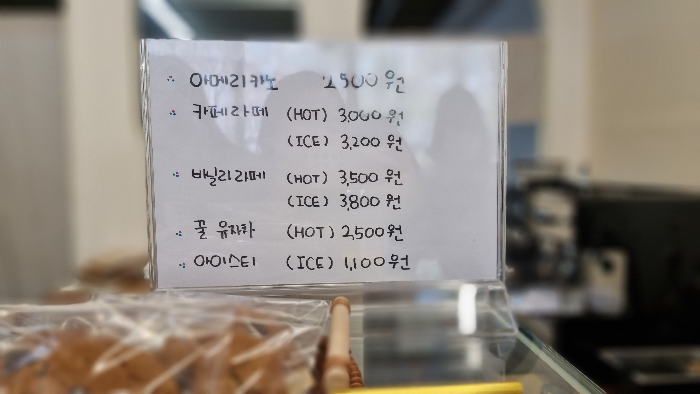 아메리카노 2,500원
카페라떼 (HOT) 3,000원
(ICE) 3,200원
바닐라라떼 (HOT) 3,500원
(ICE) 3,800원
꿀 유자차 (HOT) 2,500원
아이스티 (ICE) 1,100원